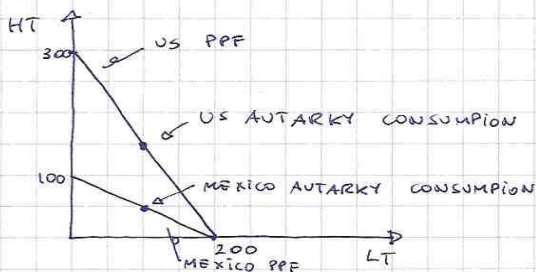 HT
US PPF
300
US AUTARKY CONSUMPION
100
MEXICO AUTARKY CONSUMPION
200
LT
MEXICO PPF